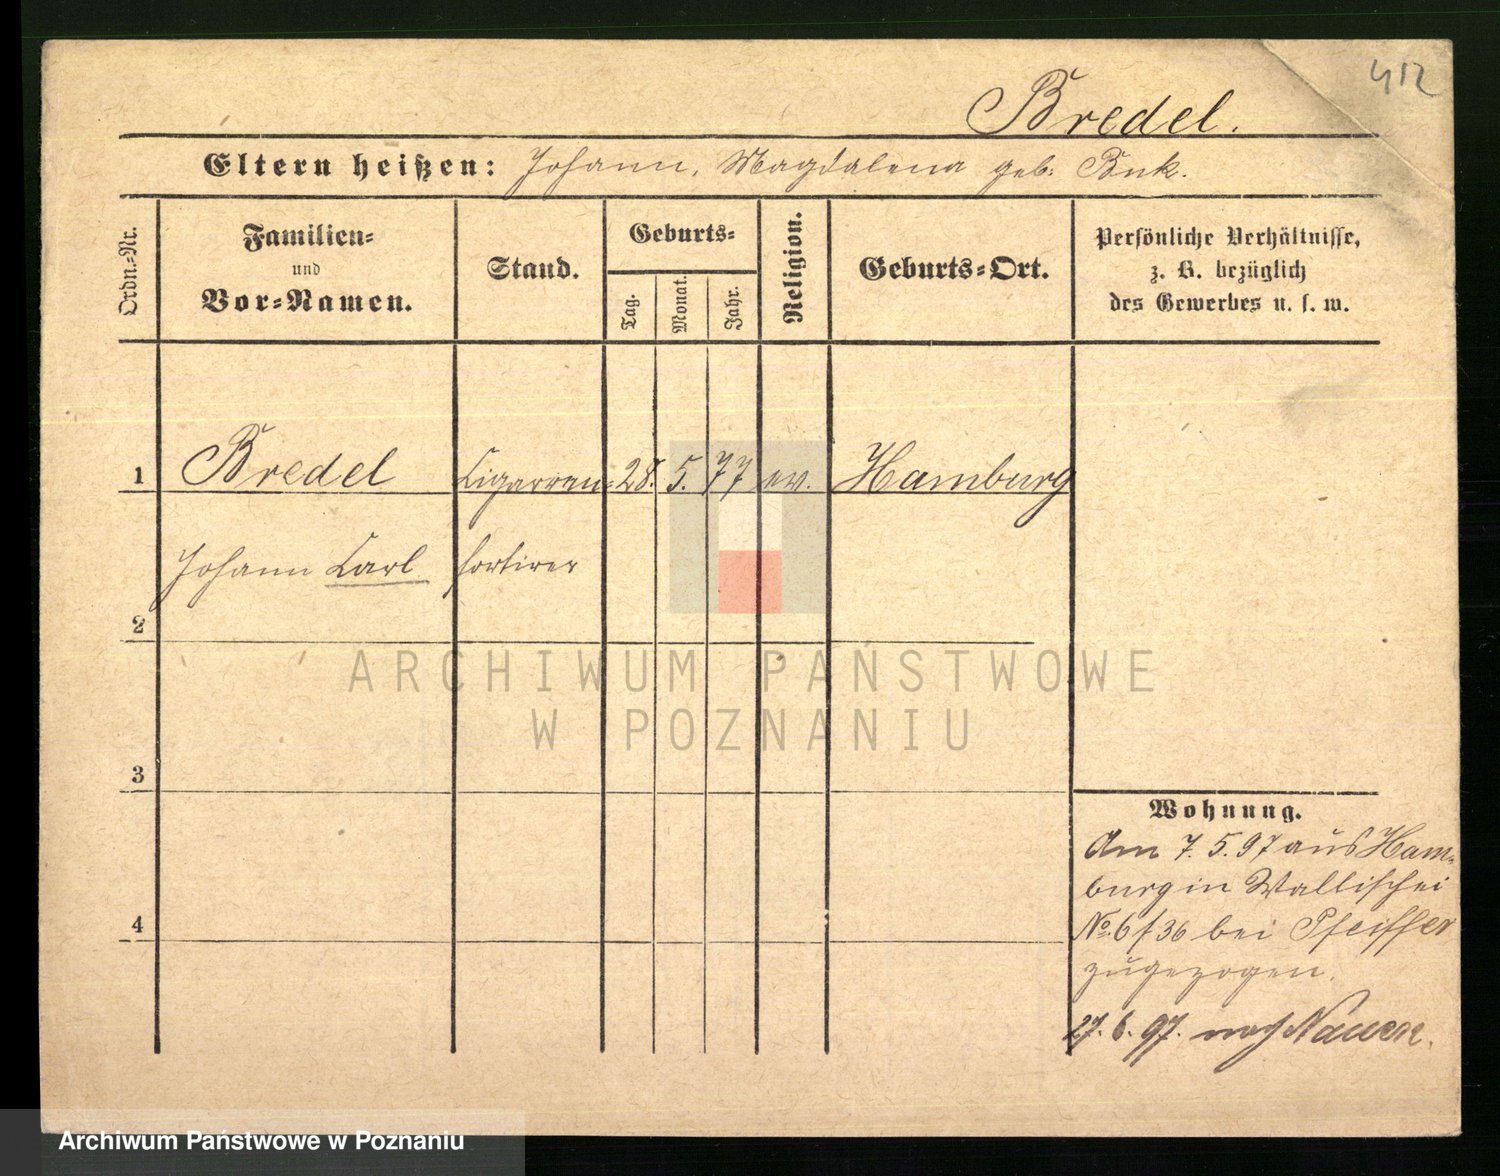 412
Bredel.
Eltern heißen: Johann, Magdalena geb. Buk.
Ordn.-Nr.
Familien-
und
Vor-Namen.
Stand.
Geburts-
Tag.
Monat.
Jahr.
Religion.
Geburts-Ort.
Persönliche Verhältnisse,
z. B. bezüglich
des Gewerbes u. s. w.
1 Bredel Cigarren- 28. 5. 77 ev. Hamburg
Johann Carl sortirer
2
ARCHIWUM PAŃSTWOWE
W POZNANIU
3
Wohnung.
Am 7.5.97 aus Ham-
burg in Wallischei
4
No. 6/36 bei Pfeiffer
zugezogen.
27.6.97. nach Nauen.
Archiwum Państwowe w Poznaniu